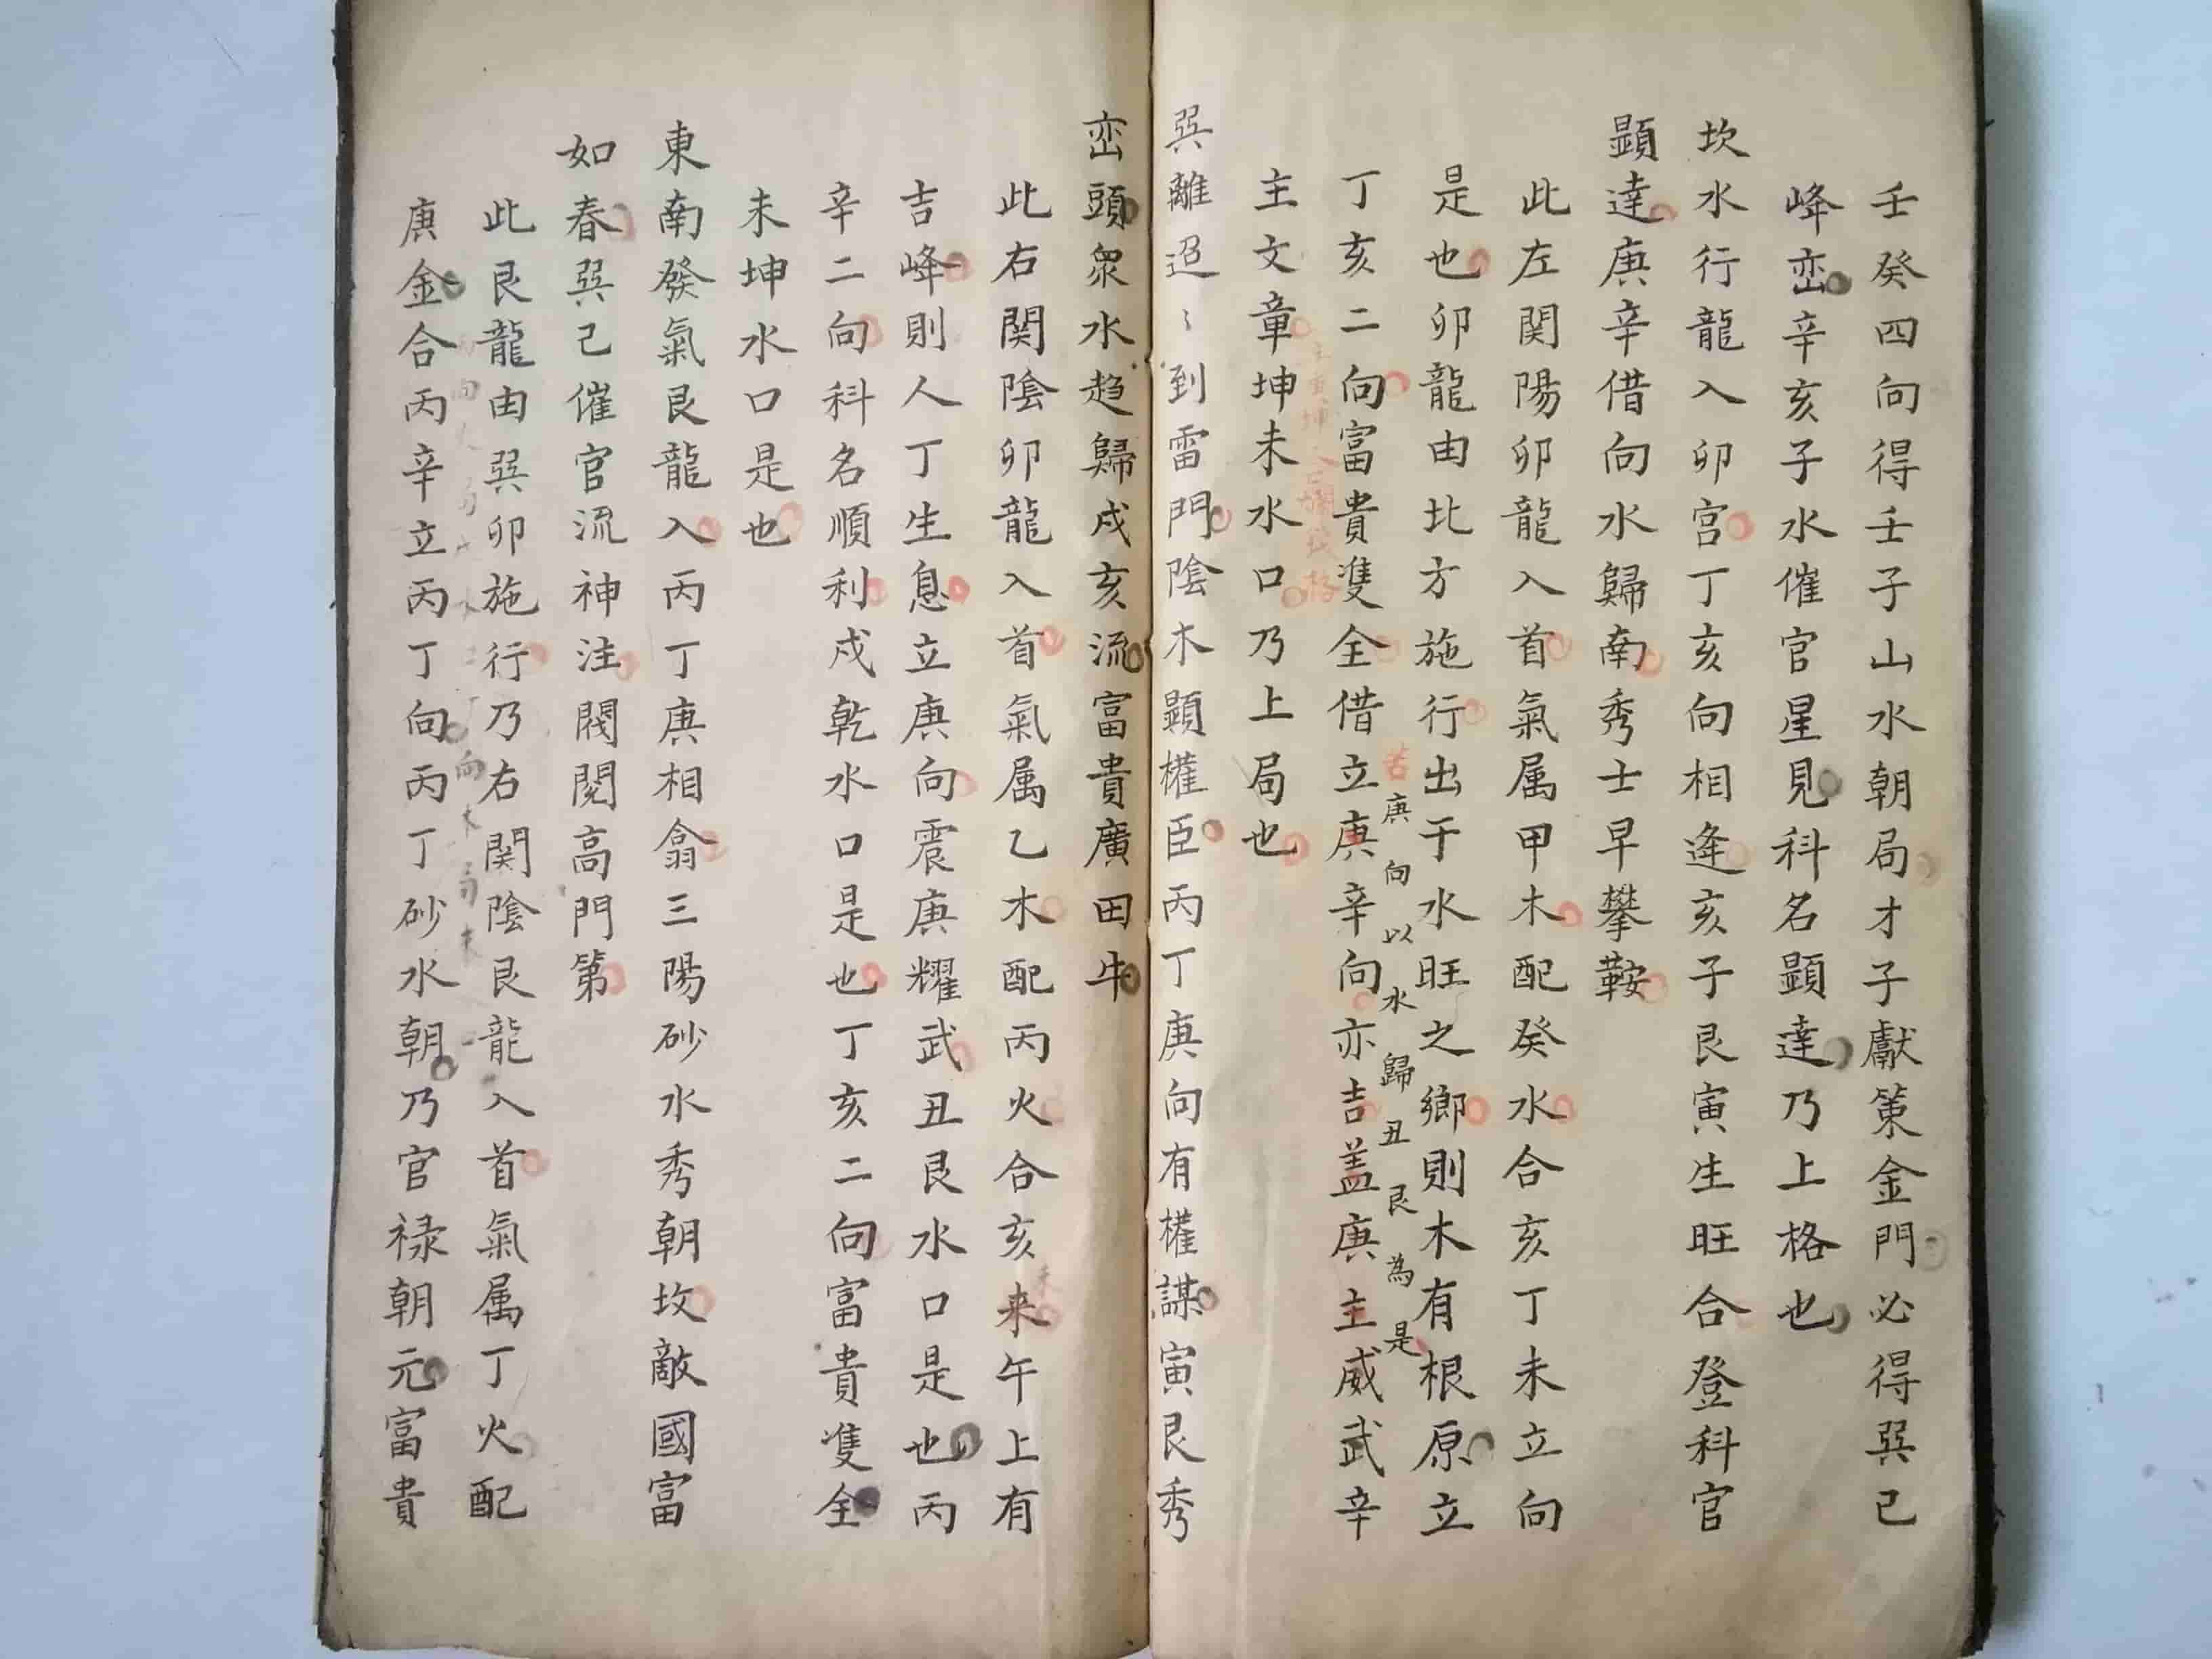 壬癸四向得壬子山水朝局才子獻策金門必得巽巳
峰巒辛亥子水催官星見科名顕達乃上格也
坎水行龍入卯宮丁亥向相逢亥子艮寅生旺合登科官
顕達庚辛借向水歸南秀士早攀鞍
此左関陽卯龍入首氣属甲木配癸水合亥丁未立向
是也卯龍由北方施行出于水旺之鄉則木有根原立
苦庚向以水歸丑艮為是
丁亥二向富貴雙全借立庚辛向亦吉盖庚主威武辛
主文章坤未水口乃上局也
巽離迢〻到雷門陰木顕權臣丙丁庚向有權謀寅艮秀
巒頭衆水趋歸戍亥流富貴廣田牛
此右関陰卯龍入首氣属乙木配丙火合亥来午上有
未
吉峰則人丁生息立庚向震庚耀武丑艮水口是也丙
辛二向科名順利戍乾水口是也丁亥二向富貴雙全
未坤水口是也
東南發氣艮龍入丙丁庚相翕三陽砂水秀朝坟敵國富
如春巽己催官流神注閥閱高門第
此艮龍由巽卯施行乃右関陰艮龍入首氣属丁火配
庚金合丙辛立丙丁向丙丁砂水朝乃官禄朝元富貴